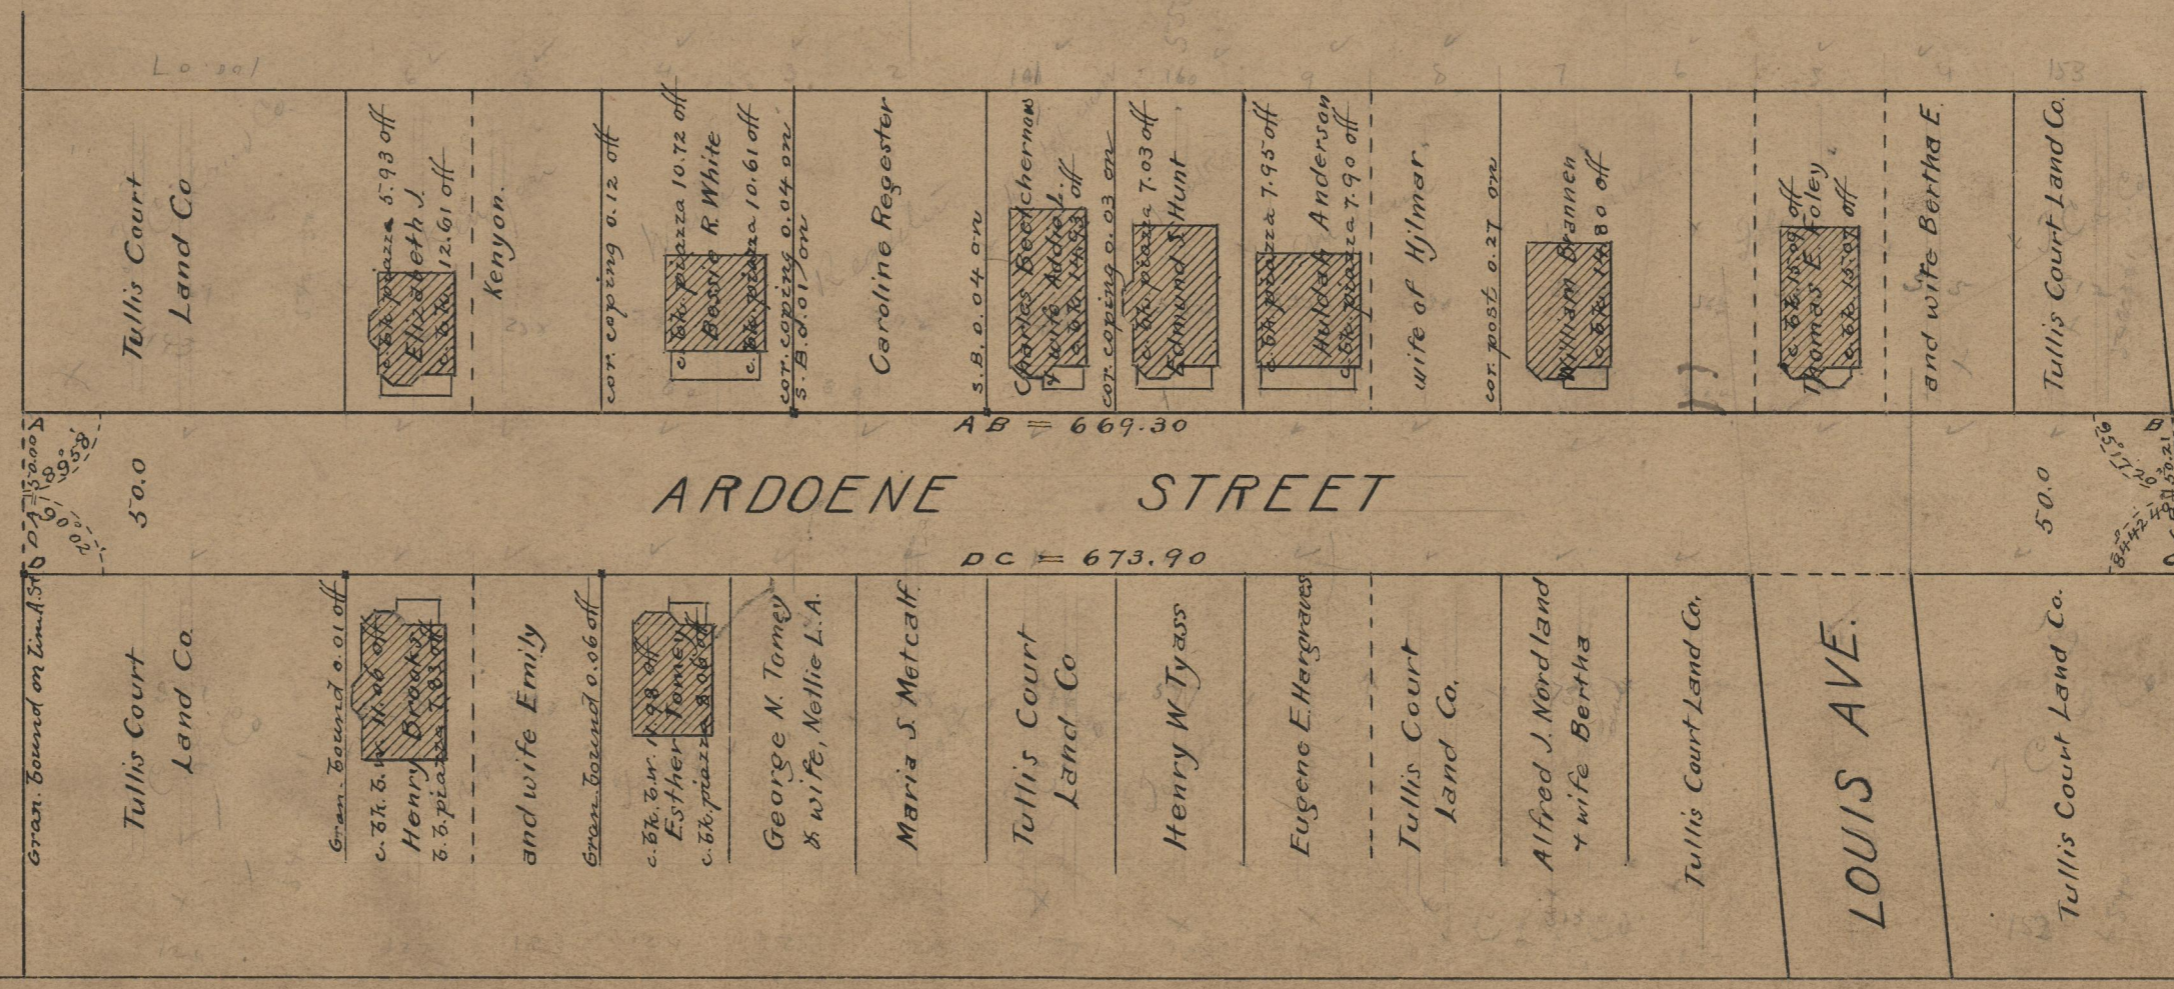 Tullis Court
Land Co
c. bk. piazza 5.93 off
Elizabeth J.
c. bk. 12.61 off
Kenyon.
cor. coping 0.12 off
c. bk. piazza 10.72 off
Bessie R. White
c. bk. piazza 10.61 off
cor. coping 0.04 on
S. B. 0.01 on
Caroline Regester
S. B. 0.04 on
Charles
& wife Addie L.
c. bk. 14.93 off
cor. coping 0.03 on
c. bk. piazza 7.03 off
Edmund S. Hunt
c. bk. piazza 7.95 off
Huldah Anderson
c. bk. piazza 7.90 off
wife of Hjlmar
cor. post 0.27 on
William Brannen
c. bk. 14.80 off
c. bk. 15.09 off
Thomas E. Foley
c. bk. 15.07 off
and wife Bertha E.
Tullis Court Land Co.
AB = 669.30
A
B
DA = 50.00
50.0
ARDOENE STREET
50.0
D
DC = 673.90
Gran. bound on line A. St.
Tullis Court
Land Co
Gran. bound 0.01 off
c. bk. b.w. 11.06 off
Henry Brooks
b. b. piazza 7.83 off
and wife Emily
Gran. bound 0.06 off
c. bk. b.w. 11.98 off
Esther Tomey
c. bk. piazza 8.06 off
George N. Tomey
& wife, Nellie L. A.
Maria S. Metcalf
Tullis Court
Land Co
Henry W Tyass
Eugene E. Hargraves
Tullis Court
Land Co.
Alfred J. Nordland
& wife Bertha
Tullis Court Land Co.
LOUIS AVE.
Tullis Court Land Co.